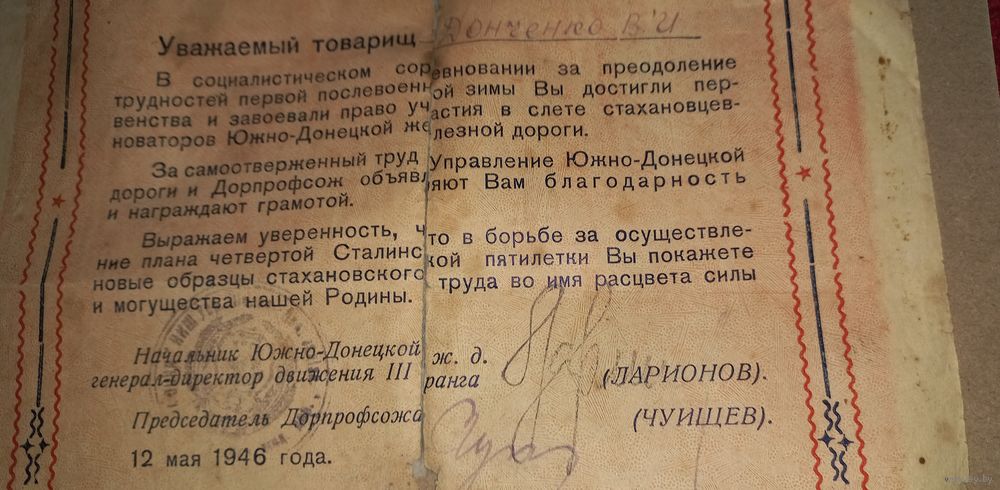 Уважаемый товарищ Донченко В.И
В социалистическом соревновании за преодоление
трудностей первой послевоенной зимы Вы достигли пер-
венства и завоевали право участия в слете стахановцев-
новаторов Южно-Донецкой железной дороги.
За самоотверженный труд Управление Южно-Донецкой
дороги и Дорпрофсож объявляют Вам благодарность
и награждают грамотой.
Выражаем уверенность, что в борьбе за осуществле-
ние плана четвертой Сталинской пятилетки Вы покажете
новые образцы стахановского труда во имя расцвета силы
и могущества нашей Родины.
Начальник Южно-Донецкой ж. д.
генерал-директор движения III ранга (ЛАРИОНОВ).
Председатель Дорпрофсожа (ЧУИЩЕВ).
12 мая 1946 года.